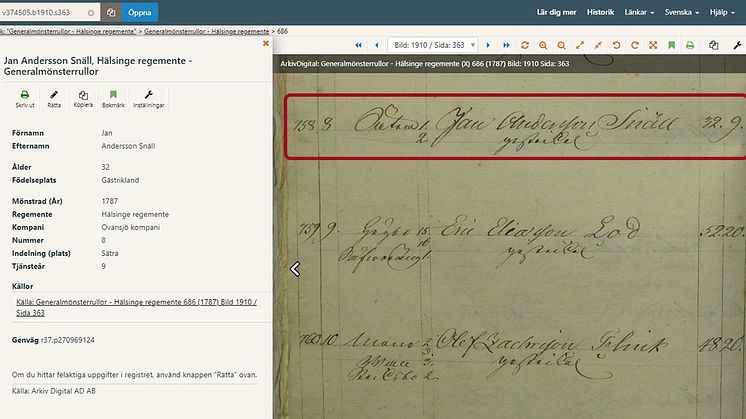 v374505.b1910.s363
Öppna
Lär dig mer Historik Länkar Svenska Hjälp
k: "Generalmönsterrullor - Hälsinge regemente" > Generalmönsterrullor - Hälsinge regemente > 686
Jan Andersson Snäll, Hälsinge regemente -
Generalmönsterrullor
Skriv ut Rätta Kopiera Bokmärk Inställningar
Förnamn Jan
Efternamn Andersson Snäll
Ålder 32
Födelseplats Gästrikland
Mönstrad (År) 1787
Regemente Hälsinge regemente
Kompani Ovansjö kompani
Nummer 8
Indelning (plats) Sätra
Tjänsteår 9
Källor
Källa: Generalmönsterrullor - Hälsinge regemente 686 (1787) Bild 1910 /
Sida 363
Genväg r37.p270969124
Om du hittar felaktiga uppgifter i registret, använd knappen "Rätta" ovan.
Källa: Arkiv Digital AD AB
Bild: 1910 / Sida: 363
ArkivDigital: Generalmönsterrullor - Hälsinge regemente (X) 686 (1787) Bild: 1910 Sida: 363
758 8 1. Jan Andersson Snäll 32. 9.
2
759 9. 15 Eric Ericsson Lod 52 20.
16
760 10 2 Olof Flink 48. 20.
3.
3.
2